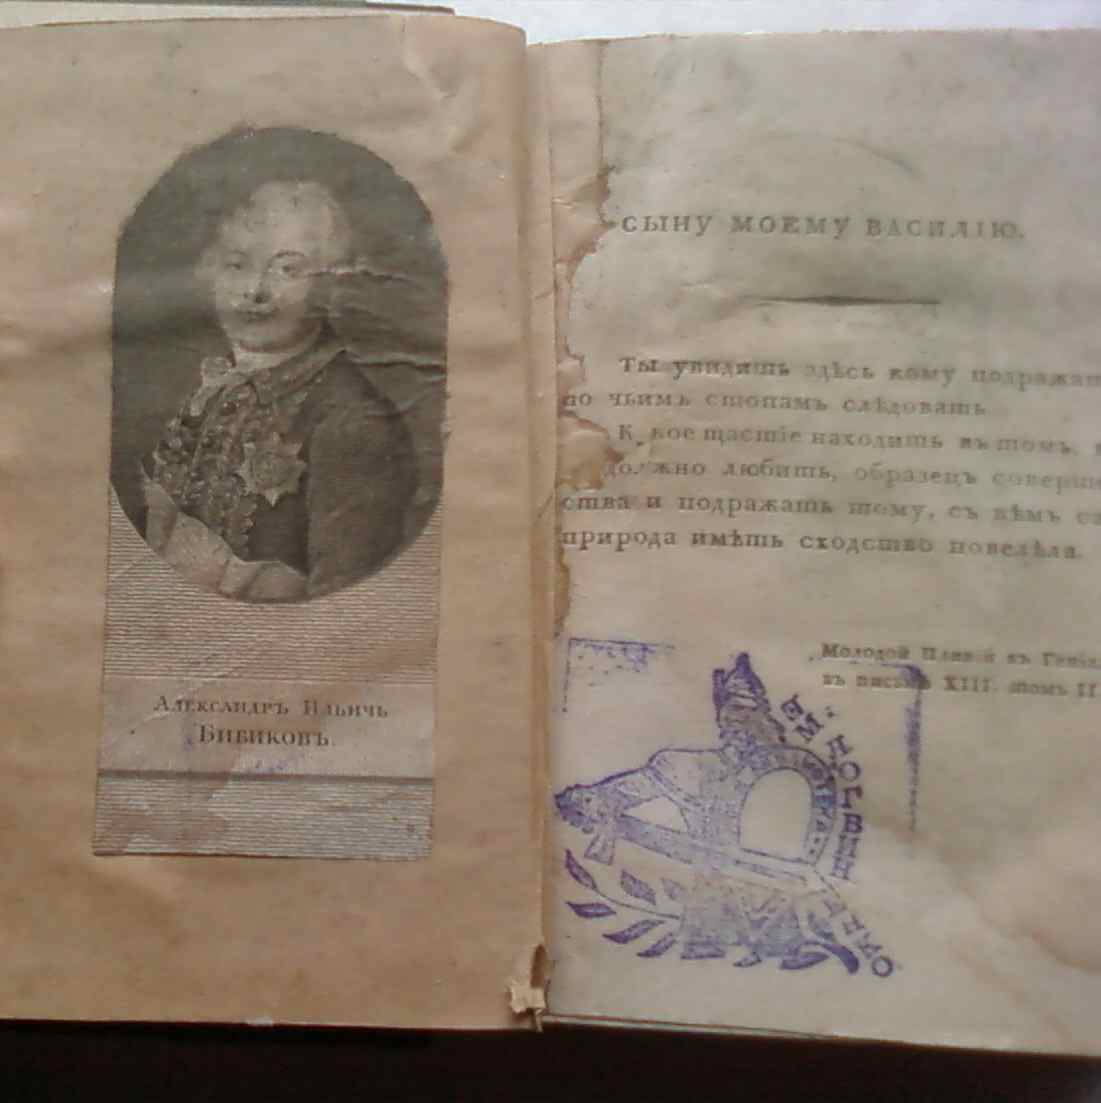 Александръ Ильичь
Бибиковъ.
СЫНУ МОЕМУ ВАСИЛІЮ.
Ты увидишь здѣсь кому подражат
по чьимъ стопамъ слѣдовать
К кое щастіе находить въ томъ,
должно любить, образецъ соверше
ства и подражать тому, съ кѣмъ са
природа имѣть сходство повелѣла.
Молодой Плиній къ
въ письмѣ XIII. томъ II